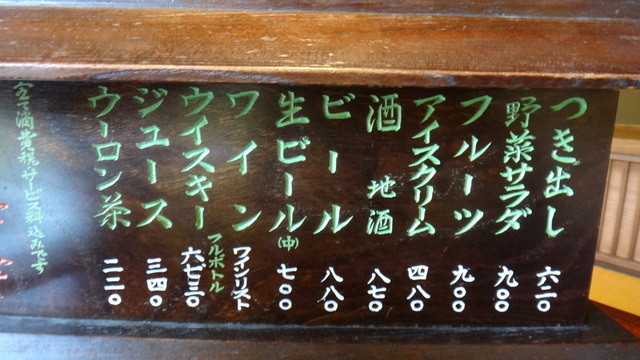 つき出し 六二〇
野菜サラダ 九〇〇
フルーツ 九〇〇
アイスクリーム 四八〇
酒 地酒 八七〇
ビール 八八〇
生ビール(中) 七〇〇
ワイン ワインリスト
ウイスキー フルボトル 六七三〇
ジュース 三四〇
ウーロン茶 二二〇
全て消費税サービス料込みです